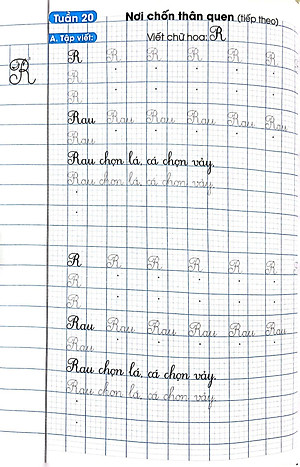 Tuần 20 Nơi chốn thân quen (tiếp theo)
A. Tập viết: Viết chữ hoa: R
R
R R R R R R
R
R
Rau Rau Rau Rau Rau Rau
Rau
Rau chọn lá, cá chọn vảy.
Rau chọn lá, cá chọn vảy.
R R R R R R
R
R
Rau Rau Rau Rau Rau Rau
Rau
Rau chọn lá, cá chọn vảy.
Rau chọn lá, cá chọn vảy.